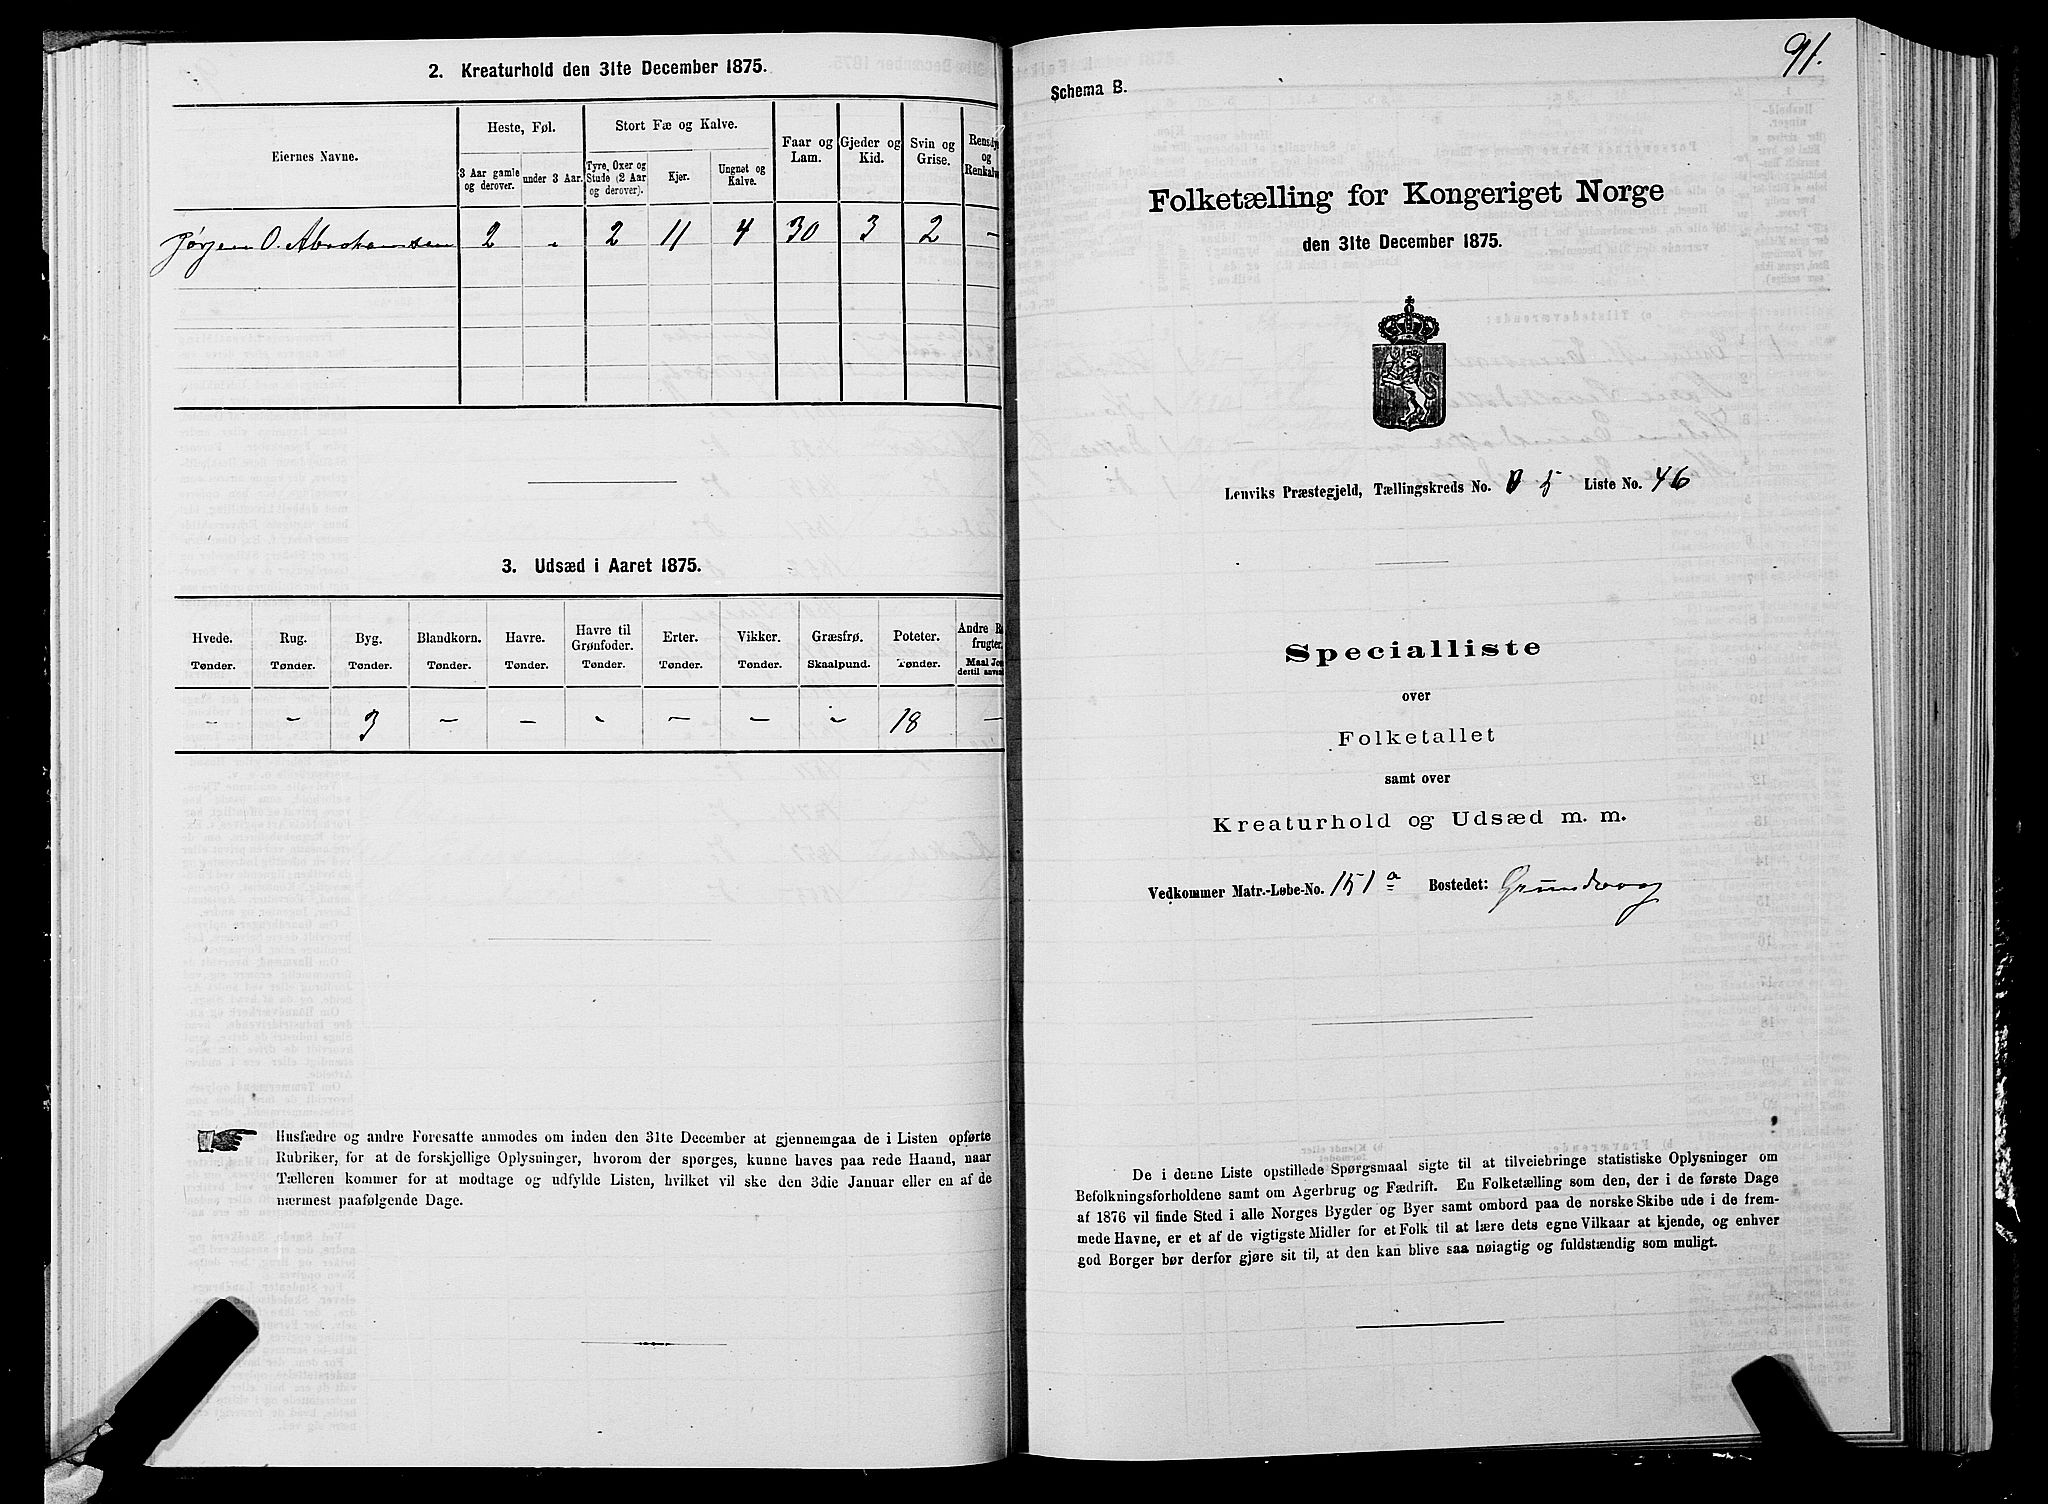 2. Kreaturhold den 31te December 1875.
Eiernes Navne.
Heste, Føl.
3 Aar gamle og derover.
under 3 Aar.
Stort Fæ og Kalve.
Tyre, Oxer og Stude (2 Aar og derover).
Kjer.
Ungnøt og Kalve.
Faar og Lam.
Gjeder og Kid.
Svin og Grise.
Rensdyr og Renkalve
Jørgen O. Abrahamsen 2 " 2 11 4 30 3 2 –
3. Udsæd i Aaret 1875.
Hvede. Tønder.
Rug. Tønder.
Byg. Tønder.
Blandkorn. Tønder.
Havre. Tønder.
Havre til Grønfoder. Tønder.
Erter. Tønder.
Vikker. Tønder.
Græsfrø. Skaalpund.
Poteter. Tønder.
Andre R
frugter.
Maal Jo
dertil anven
– – 3 – – – – – – 18 –
Husfædre og andre Foresatte anmodes om inden den 31te December at gjennemgaa de i Listen opførte
Rubriker, for at de forskjellige Oplysninger, hvorom der spørges, kunne haves paa rede Haand, naar
Tælleren kommer for at modtage og udfylde Listen, hvilket vil ske den 3die Januar eller en af de
nærmest paafølgende Dage.
91.
Schema B.
Folketælling for Kongeriget Norge
den 31te December 1875.
Lenviks Præstegjeld, Tællingskreds No. 5 Liste No. 46
Specialliste
over
Folketallet
samt over
Kreaturhold og Udsæd m. m.
Vedkommer Matr.-Løbe-No. 151 a Bostedet: Grundvaag
De i denne Liste opstillede Spørgsmaal sigte til at tilveiebringe statistiske Oplysninger om
Befolkningsforholdene samt om Agerbrug og Fædrift. En Folketælling som den, der i de første Dage
af 1876 vil finde Sted i alle Norges Bygder og Byer samt ombord paa de norske Skibe ude i de frem-
mede Havne, er et af de vigtigste Midler for et Folk til at lære dets egne Vilkaar at kjende, og enhver
god Borger bør derfor gjøre sit til, at den kan blive saa nøiagtig og fuldstændig som muligt.